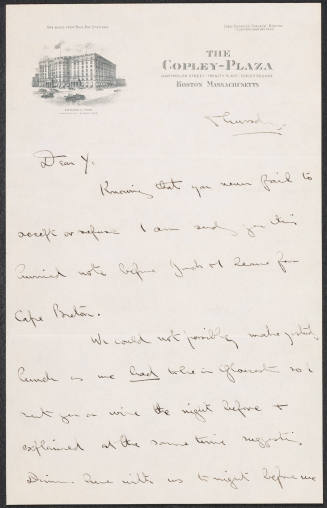 THE
COPLEY-PLAZA
BOSTON MASSACHUSETTS
Thursday.
Dear Y.
Knowing that you never fail to
accept or refuse I am sending you this
hurried note before Jack & I leave for
Cape Breton.
We could not possibly make yesterday
lunch as we had to be in Gloucester so I
sent you a wire the night before &
explained at the same time suggesting
Dinner here with us to night before we